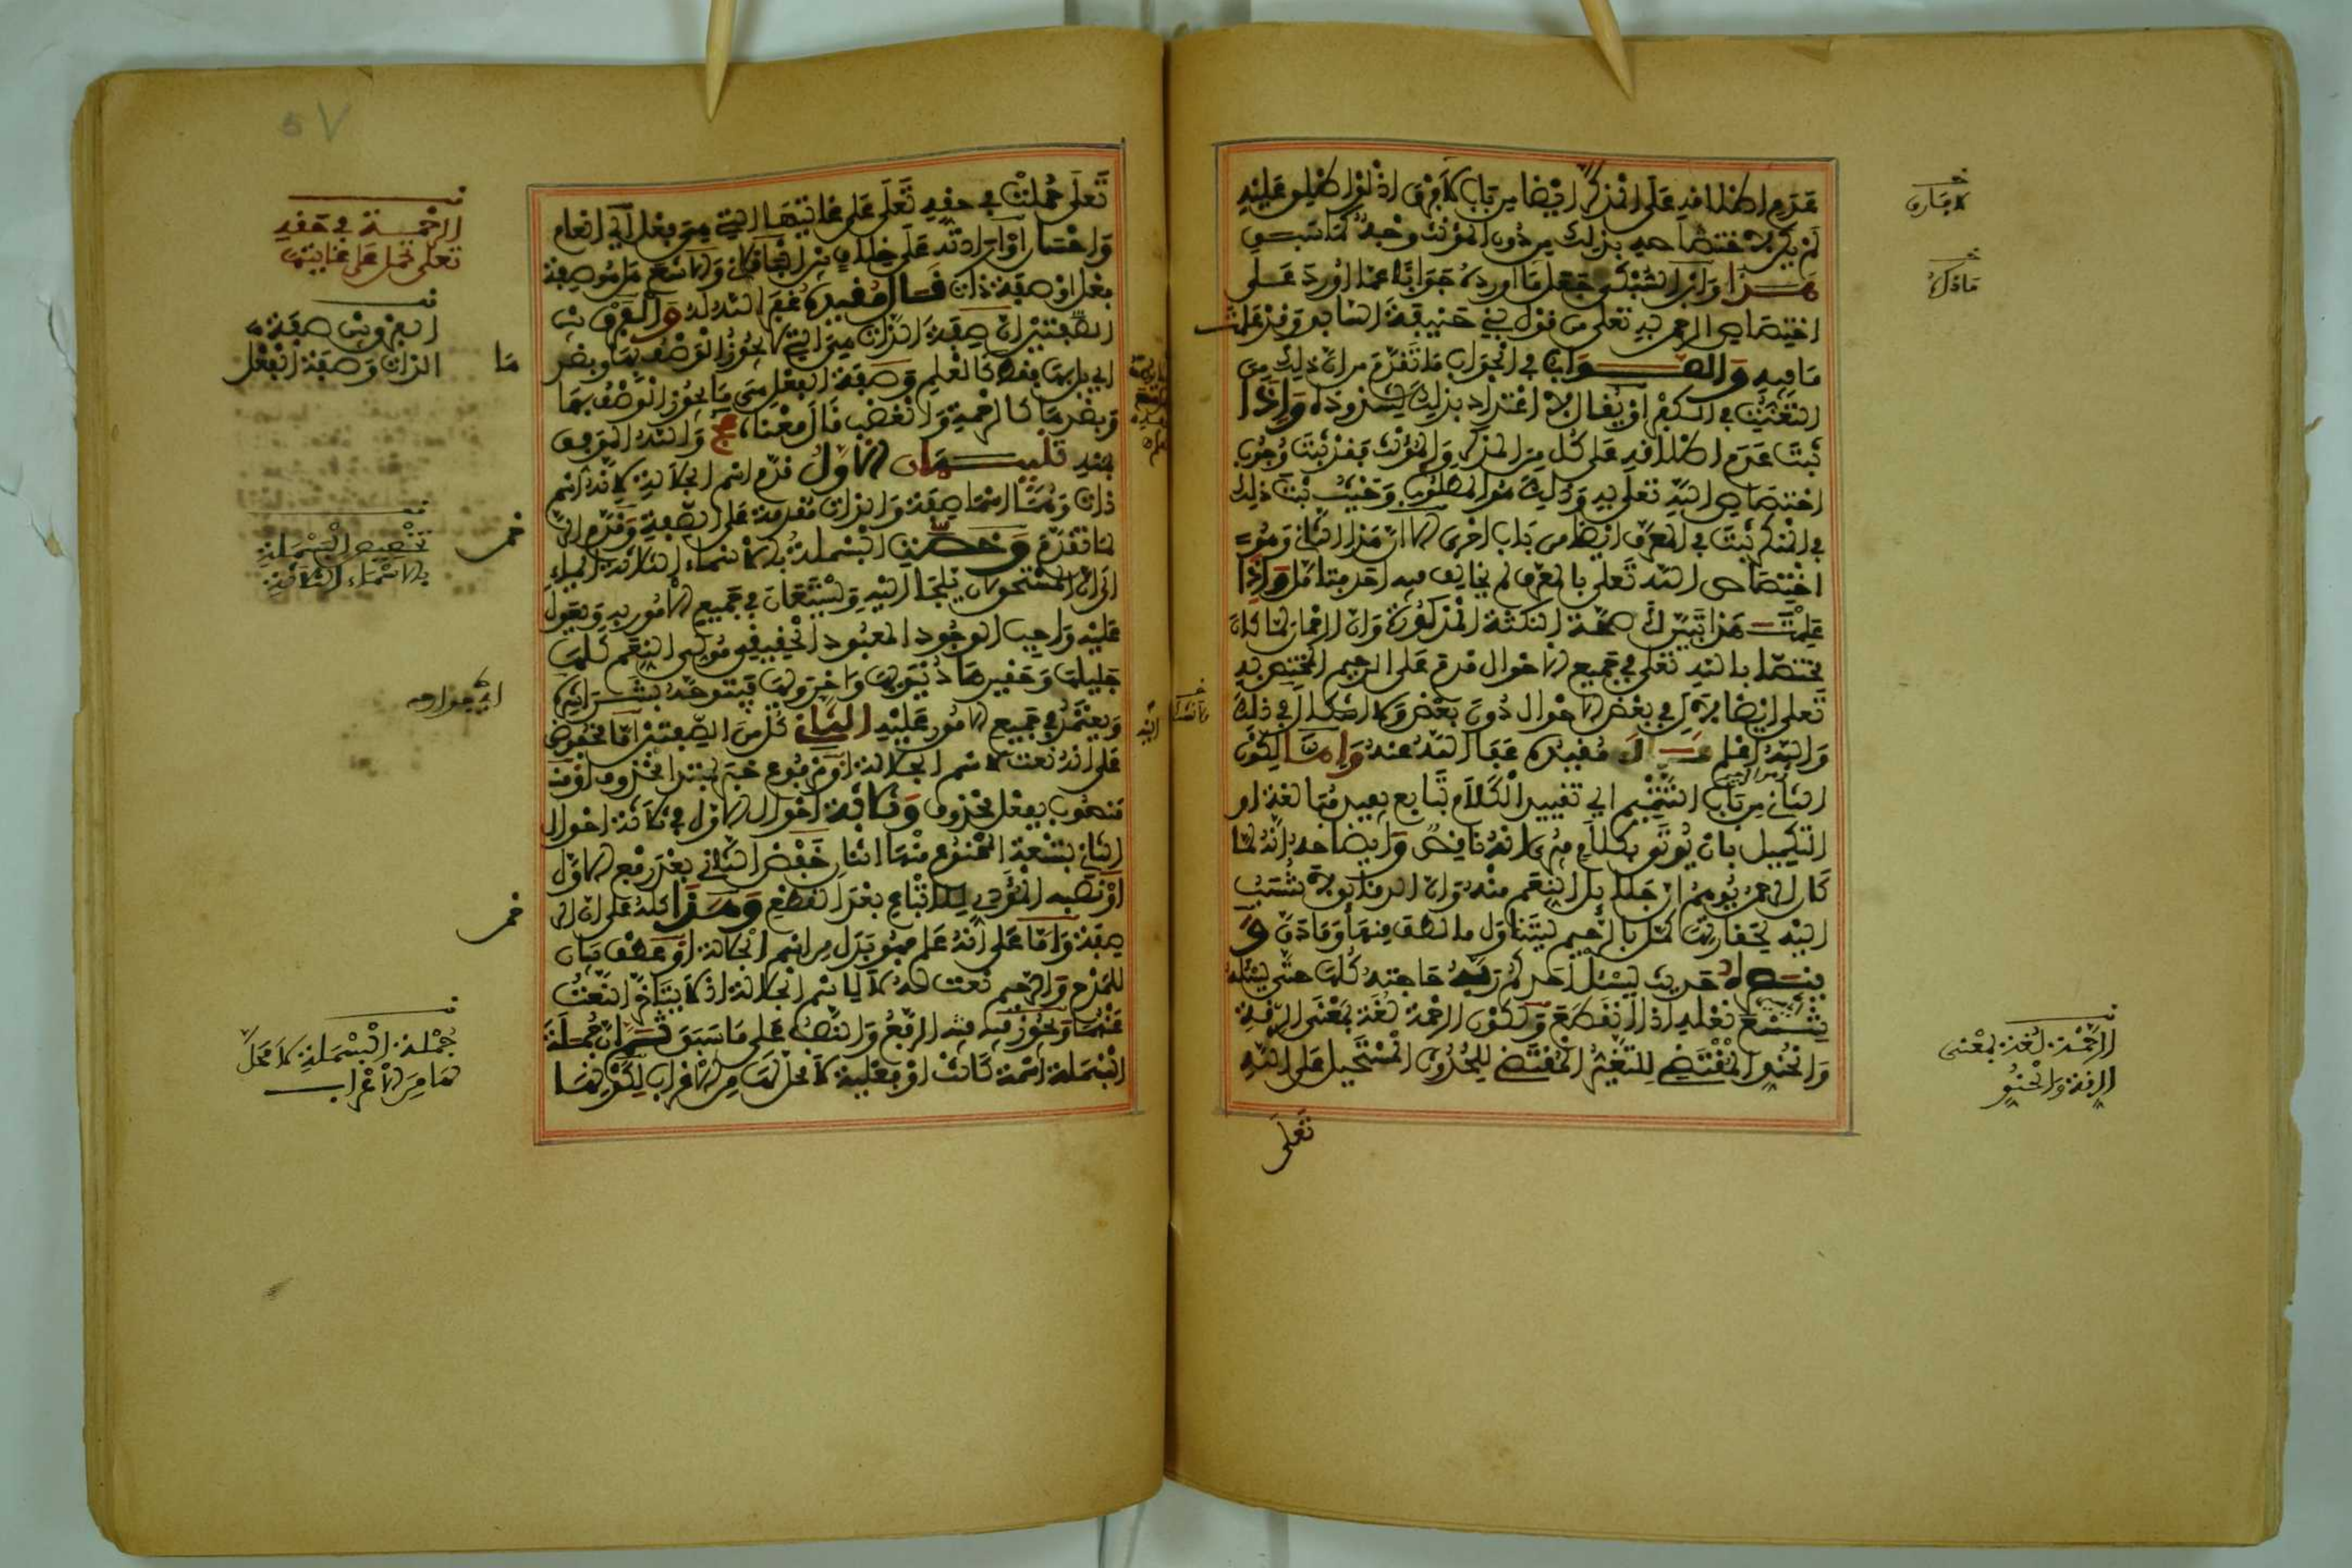 عدم اطلاقه على المذكر ايضا من باب لا فرق اذ لو اطلق عليه
لم يكن لاختصاصه بذلك من دون المؤنث وجه كما سبق
هذا وابن السبكي جعل ما اورده جوابا عما اورد على
اختصاص الرحمن به تعلى من قول بني حنيفة السابق وقد علمت
ما فيه والصواب في الجواب ما تقدم من ان ذلك من
التعنت في الكفر او يقال لا اعتداد بذلك لشذوذه واذا
ثبت عدم اطلاقه على كل من المذكر والمؤنث فقد ثبت وجوب
اختصاص الله تعلى به وذلك هو المطلوب وحيث ثبت ذلك
في المنكر ثبت في المعرف ايضا من باب احرى لان هذا الثاني وهو
اختصاص الله تعلى بالمعرف لم يخالف فيه احد فتامل واذا
علمت هذا تبين لك صحة النكتة المذكورة وان الرحمان لما كان
مختصا بالله تعلى في جميع الاحوال قدم على الرحيم المختص به
تعلى ايضا لا في بعض الاحوال دون بعض ولا اشكال في ذلك
والله اعلم قال مقيده عفا الله عنه واما لكون
الثاني من باب التتميم اي تقييد الكلام بتابع يفيد مبالغة او
التكميل بان يوتى بكلام
كان الرحمن يوهم ان جلائل النعم منه وان الدقائق لا تنسب
اليه لحقارتها كمل بالرحيم ليتناول ما لطف منها وما دق و
حديث ليسئل احدكم ربه حاجته كلها حتى يسئله
شسع نعله اذا انقطع ولكون الرحمة لغة بمعنى الرقة
والحنو المقتضي للتغير المقتضي للحدوث المستحيل على الله
تعلى
الرحمة لغة بمعنى
الرقة والحنو
تعلى حملت في حقه تعلى على غايتها التي هي فعل اي انعام
واحسان او ارادته على خلاف بين الباقلاني والاشعري هل هو صفة
فعل او صفة ذات قال مقيده غفر الله له والفرق بين
الصفتين ان صفة الذات هي التي لا يجوز الوصف بها وبضدها
اي بل بها فقط كالعلم وصفة الفعل هي ما يجوز الوصف بها
وبضدها كالرحمة والغضب قال معناه ح والله الموفق
بفيه تنبيهان الاول قدم اسم الجلالة لانه اسم
ذات وهما اسما صفة والذات مقدمة على الصفة وقدم
لما تقدم وخصت البسملة بهذه الاسماء الثلاثة ايماء
الى ان المستحق لان يلجا اليه ويستعان في جميع الامور به ويعول
عليه واجب الوجود المعبود الحقيقي مولى النعم كلها
جليلها وحقيرها دنيويها واخرويها فيتوجه بشراشره
ويعتمد في جميع الامور عليه الثاني كل من الصفتين اما مخفوض
على انه نعت لاسم الجلالة او مرفوع خبر لمبتدا محذوف او
منصوب بفعل محذوف وثلاثة احوال الاول في ثلاثة احوال
الثاني بتسعة الممنوع منها اثنان خفض الثاني بعد رفع الاول
او نصبه المؤدي للاتباع بعد القطع وهذا كله على ان
صفة واما على انه علم فهو بدل من اسم الجلالة او عطف بيان
للمدح والرحيم نعت له لا لاسم الجلالة اذ لا يتاخر النعت
عنهما ويجوز فيه الرفع والنصب على ما سبق ثم ان جملة
البسملة اسمية كانت او فعلية لا محل لها من الاعراب لكونها
الرحمة في حقه
تعلى تحمل على غايتها
الفرق بين صفة
الذات وصفة الفعل
تخصيص البسملة
بالاسماء الثلاثة
اي جوارحه
جملة البسملة لا محل
لها من الاعراب